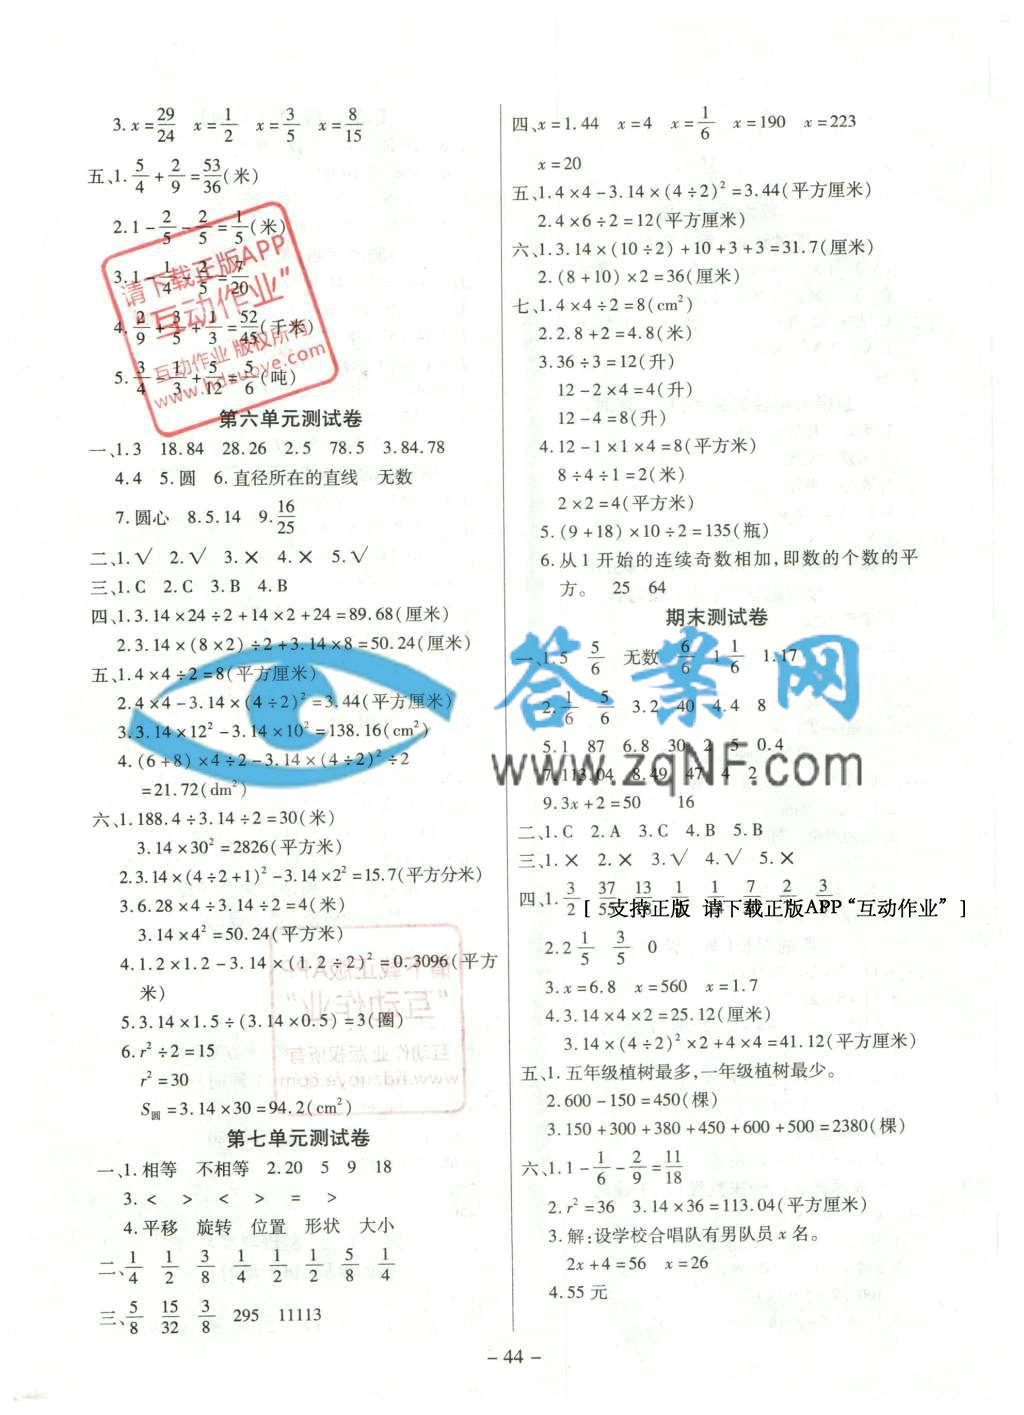 3. x=29/24  x=1/2  x=3/5  x=8/15
五、1. 5/4+2/9=53/36(米)
2. 1-2/5-2/5=1/5(米)
3. 1-1/4-2/5=7/20
4. 2/9+3/5+1/3=52/45(千米)
5. 3/4-1/3+5/12=5/6(吨)
第六单元测试卷
一、1.3  18.84  28.26  2.5  78.5  3.84.78
4.4  5.圆  6.直径所在的直线  无数
7.圆心  8.5.14  9. 16/25
二、1.√  2.√  3.×  4.×  5.√
三、1.C  2.C  3.B  4.B
四、1.3.14×24÷2+14×2+24=89.68(厘米)
2.3.14×(8×2)÷2+3.14×8=50.24(厘米)
五、1.4×4÷2=8(平方厘米)
2.4×4-3.14×(4÷2)²=3.44(平方厘米)
3.3.14×12²-3.14×10²=138.16(cm²)
4.(6+8)×4÷2-3.14×(4÷2)²÷2
=21.72(dm²)
六、1.188.4÷3.14÷2=30(米)
3.14×30²=2826(平方米)
2.3.14×(4÷2+1)²-3.14×2²=15.7(平方分米)
3.6.28×4÷3.14÷2=4(米)
3.14×4²=50.24(平方米)
4.1.2×1.2-3.14×(1.2÷2)²=0.3096(平方
米)
5.3.14×1.5÷(3.14×0.5)=3(圈)
6.r²÷2=15
r²=30
S圆=3.14×30=94.2(cm²)
第七单元测试卷
一、1.相等  不相等  2.20  5  9  18
3.<  >  <  >  =  >
4.平移  旋转  位置  形状  大小
二、1/4  1/2  3/8  1/4  1/2  1/2  5/8  1/4
三、5/8  15/32  3/8  295  11113
四、x=1.44  x=4  x=1/6  x=190  x=223
x=20
五、1.4×4-3.14×(4÷2)²=3.44(平方厘米)
2.4×6÷2=12(平方厘米)
六、1.3.14×(10÷2)+10+3+3=31.7(厘米)
2.(8+10)×2=36(厘米)
七、1.4×4÷2=8(cm²)
2.2.8+2=4.8(米)
3.36÷3=12(升)
12-2×4=4(升)
12-4=8(升)
4.12-1×1×4=8(平方米)
8÷4÷1=2(米)
2×2=4(平方米)
5.(9+18)×10÷2=135(瓶)
6.从1开始的连续奇数相加,即数的个数的平
方。  25  64
期末测试卷
一、1.5  5/6  无数  6/6  1 1/6  1.17
2. 1/6  5/6  3.2  40  4.4  8
5.1  87  6.8  30  2  5  0.4
7.113.04  8.49  47  4  2
9.3x+2=50  16
二、1.C  2.A  3.C  4.B  5.B
三、1.×  2.×  3.√  4.√  5.×
四、1. 3/2
[ 支持正版 请下载正版APP“互动作业” ]
2.2 1/5  3/5  0
3.x=6.8  x=560  x=1.7
4.3.14×4×2=25.12(厘米)
3.14×(4÷2)²×2+4×4=41.12(平方厘米)
五、1.五年级植树最多,一年级植树最少。
2.600-150=450(棵)
3.150+300+380+450+600+500=2380(棵)
六、1.1-1/6-2/9=11/18
2.r²=36  3.14×36=113.04(平方厘米)
3.解:设学校合唱队有男队员x名。
2x+4=56  x=26
4.55元
- 44 -
请下载正版APP
“互动作业”
互动作业 版权所有
www.hdzuoye.com
答案网
www.zqNF.com